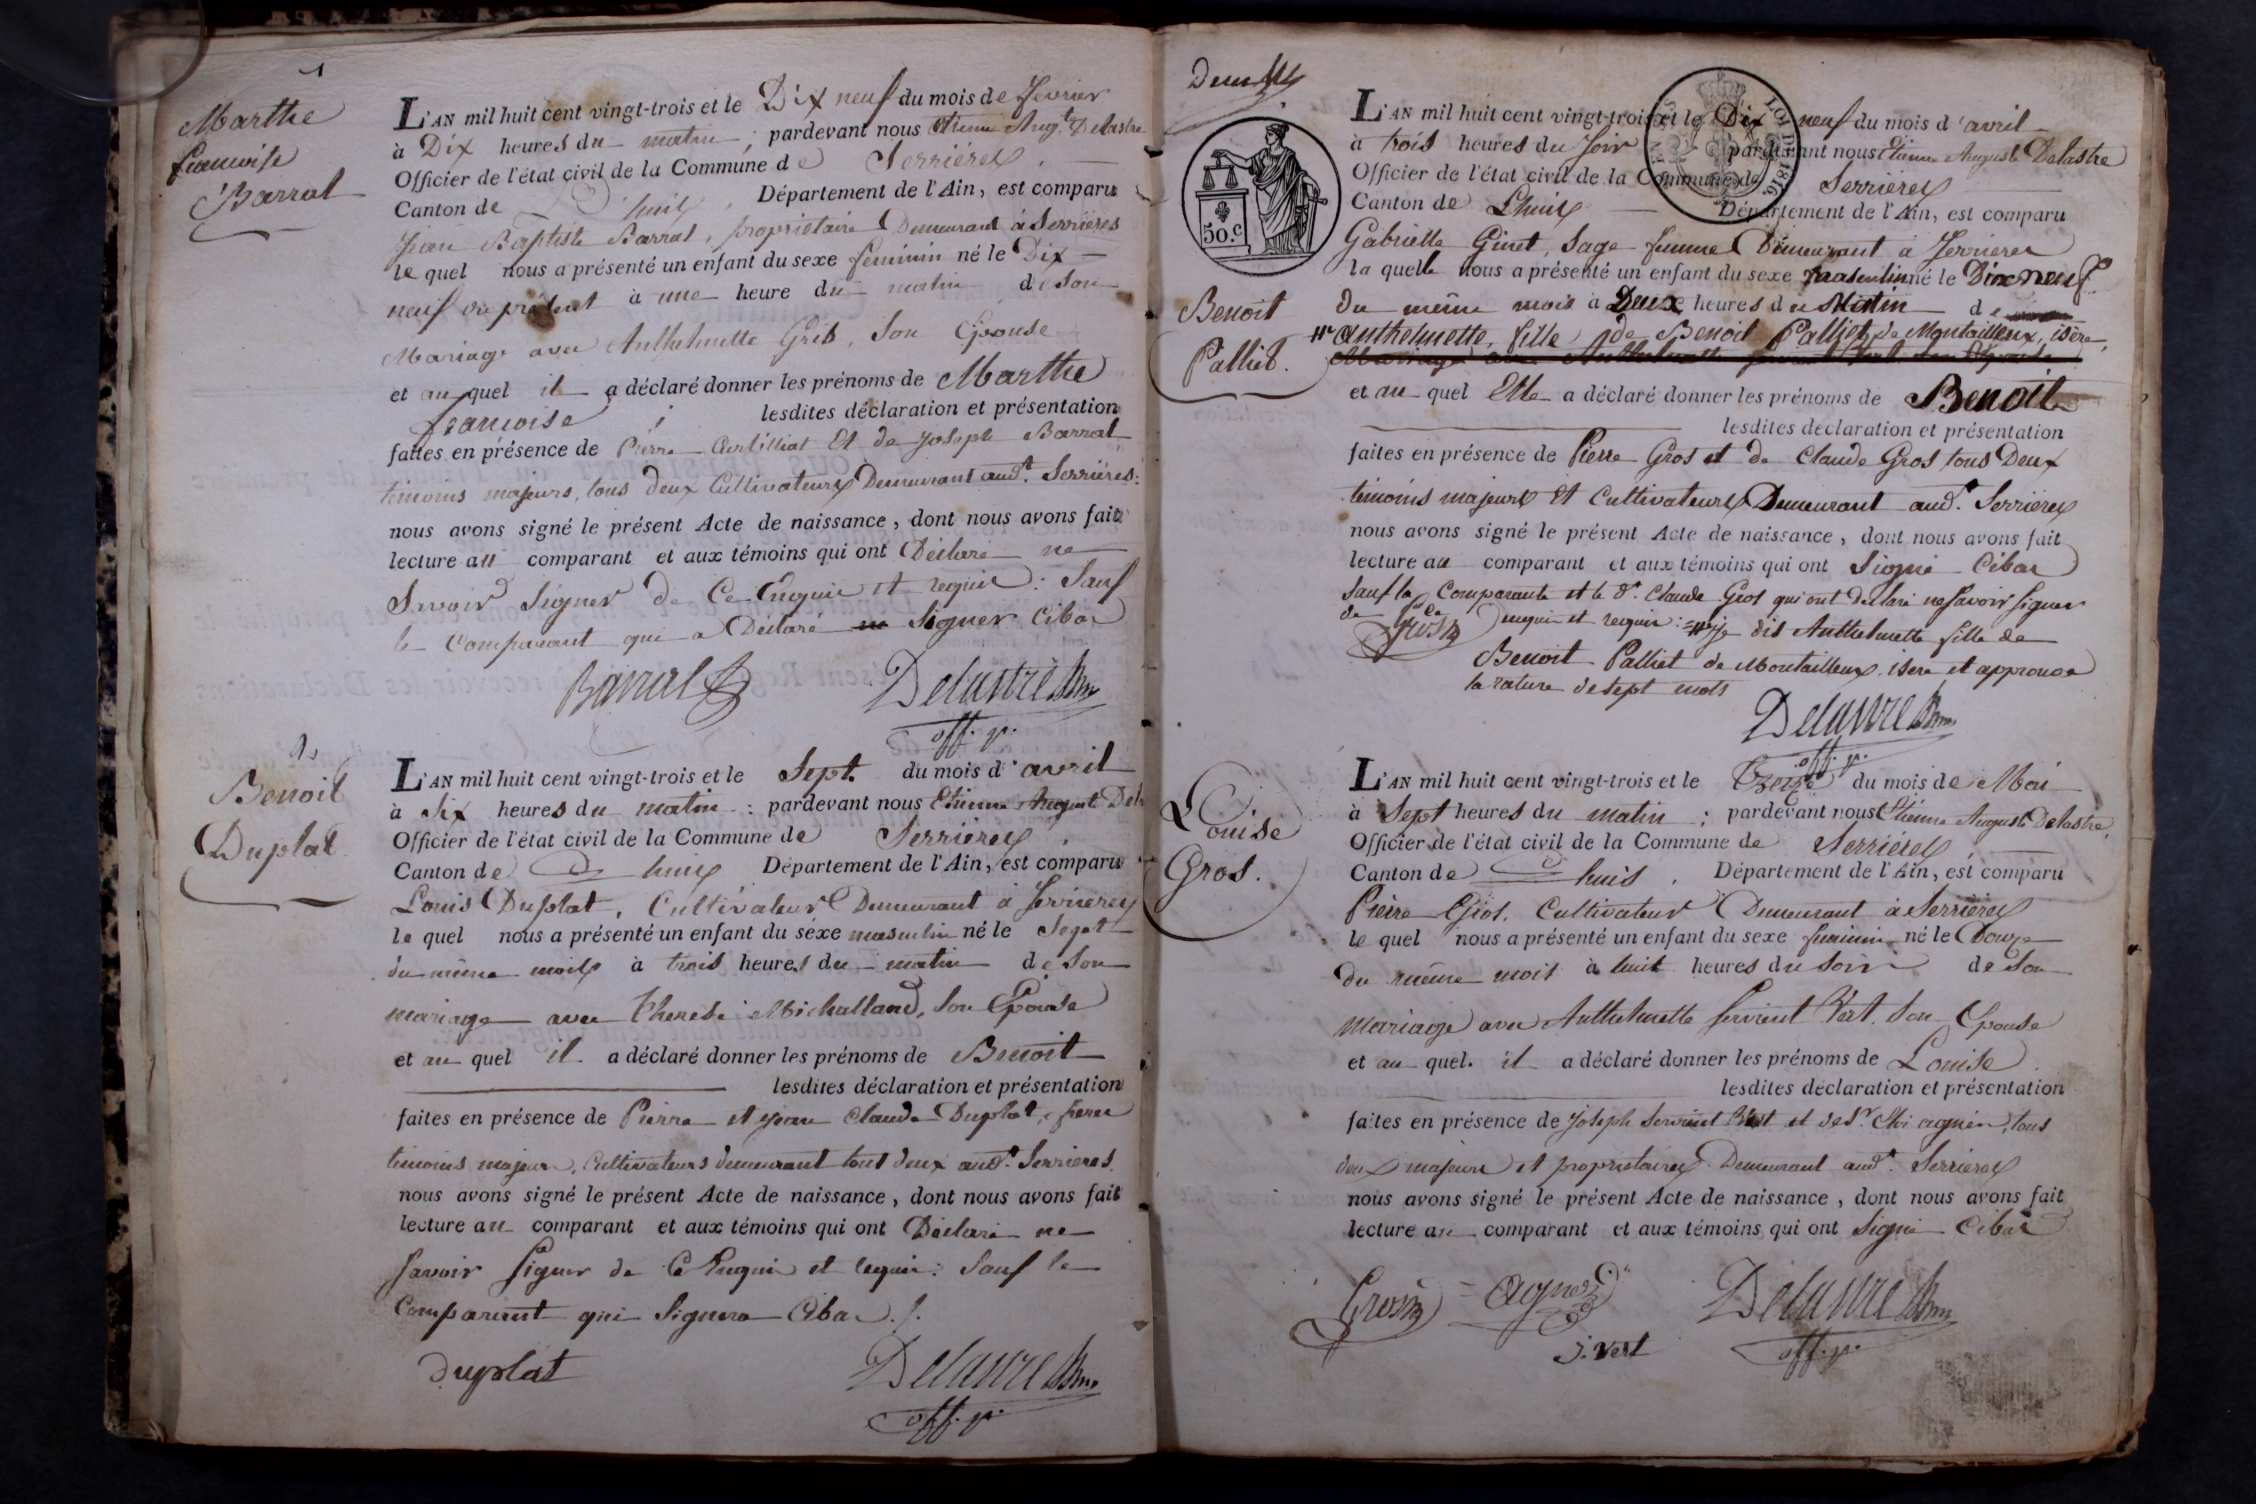 1
Marthe
francoise
Barral
L'AN mil huit cent vingt-trois et le Dix neuf du mois de fevrier
à Dix heures du matin ; pardevant nous Etienne Aug.te Delastre
Officier de l'état civil de la Commune de Serriéres
Canton de Lhuis Département de l'Ain, est comparu
Jean Baptiste Barral, propriétaire Demeurant à Serriéres
le quel nous a présenté un enfant du sexe féminin né le Dix
neuf du présent à une heure du matin de son
Mariage avec Anthelmette Grib, son Epouse
et au quel il a déclaré donner les prénoms de Marthe
francoise ; lesdites déclaration et présentation
faites en présence de Pierre et de Joseph Barral
temoins majeurs, tous deux Cultivateurs Demeurant aud.t Serriéres :
nous avons signé le présent Acte de naissance, dont nous avons fait
lecture au comparant et aux témoins qui ont Déclaré ne
Savoir Signer de Ce Enquis et requis : Sauf
le Comparant qui a Déclaré Signer Cibas
Barral Delastre
off. p.
2
Benoit
Duplat
L'AN mil huit cent vingt-trois et le Sept du mois d'avril
à Six heures du matin : pardevant nous Etienne August Del
Officier de l'état civil de la Commune de Serriéres
Canton de Lhuis Département de l'Ain, est comparu
Louis Duplat, Cultivateur Demeurant à Serriéres
le quel nous a présenté un enfant du sexe masculin né le Sept
du même mois à trois heures du matin de son
mariage avec Therese Michalland, son Epouse
et au quel il a déclaré donner les prénoms de Benoit
lesdites déclaration et présentation
faites en présence de Pierre et Jean Claude Duplat, freres
temoins majeurs, Cultivateurs demeurant tout deux aud.t Serrieres
nous avons signé le présent Acte de naissance, dont nous avons fait
lecture au comparant et aux témoins qui ont Déclaré ne
Savoir Signer de Ce Enquis et requis : Sauf le
Comparant qui Signera Cibas ./.
duplat Delastre
off. p.
Deux
50.c
LOI DE 1816
Benoit
Palliet.
L'AN mil huit cent vingt-trois et le Dix neuf du mois d'avril
à trois heures du soir pardevant nous Etienne Auguste Delastre
Officier de l'état civil de la Commune de Serriéres
Canton de Lhuis Département de l'Ain, est comparu
Gabrielle Ginet, Sage femme Demeurant à Serrieres
la quelle nous a présenté un enfant du sexe masculin né le Dix neuf
du même mois à Deux heures du Matin de
Anthelmette, fille de Benoit Palliet de Montailleux, isère,
et au quel Elle a déclaré donner les prénoms de Benoit
lesdites déclaration et présentation
faites en présence de Pierre Gros et de Claude Gros tous Deux
témoins majeurs Et Cultivateurs Demeurant aud.t Serriéres
nous avons signé le présent Acte de naissance, dont nous avons fait
lecture au comparant et aux témoins qui ont Signé Cibas
Sauf la Comparante et le d.t Claude Gros qui ont déclaré ne savoir signer
de ce enquis et requis : je dis Anthelmette fille de
Gros
Benoit Palliet de Montailleux isere et approuve
la rature de sept mots
Delastre
off. p.
Louise
Gros.
L'AN mil huit cent vingt-trois et le Treize du mois de Mai
à Sept heures du matin ; pardevant nous Etienne Auguste Delastre,
Officier de l'état civil de la Commune de Serriéres
Canton de Lhuis . Département de l'Ain, est comparu
Pierre Gros, Cultivateur Demeurant à Serriéres
le quel nous a présenté un enfant du sexe feminin né le Douze
du même mois à huit heures du soir de son
mariage avec Anthelmette Servient Vert son Epouse
et au quel il a déclaré donner les prénoms de Louise
lesdites déclaration et présentation
faites en présence de Joseph Servient Vert et de S.r agnés, tous
deux majeurs et propriétaires Demeurant aud.t Serrieres
nous avons signé le présent Acte de naissance, dont nous avons fait
lecture au comparant et aux témoins qui ont Signé Cibas
Gros Agnes Delastre
J. Vert off. p.